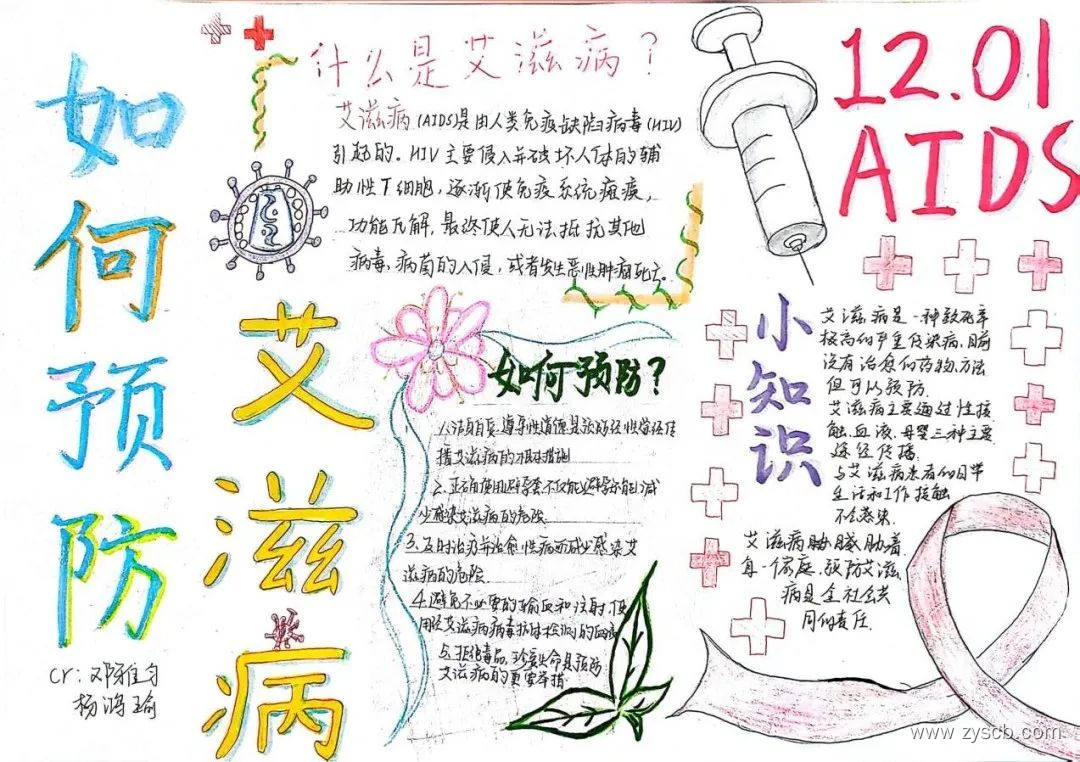 如何预防
艾滋病
cr：邓雅匀
杨鸿瑜
什么是艾滋病？
艾滋病(AIDS)是由人类免疫缺陷病毒(HIV)
引起的。HIV主要侵入并破坏人体的辅
助性T细胞，逐渐使免疫系统瘫痪，
功能瓦解，最终使人无法抵抗其他
病毒、病菌的入侵，或者发生恶性肿瘤死亡。
12.01
AIDS
如何预防？
1.洁身自爱、遵守性道德是预防经性途径传
播艾滋病的根本措施
2.正确使用避孕套不仅能避孕还能减
少感染艾滋病的危险
3.及时治疗并治愈性病可减少感染艾
滋病的危险
4.避免不必要的输血和注射，使
用经艾滋病病毒抗体检测的血液
5.拒绝毒品，珍爱生命是预防
艾滋病的重要举措
小知识
艾滋病是一种致死率
极高的严重传染病，目前
没有治愈的药物、方法
但可以预防。
艾滋病主要通过性接
触、血液、母婴三种主要
途径传播。
与艾滋病患者的日常
生活和工作接触
不会感染。
艾滋病威胁着
每一个家庭，预防艾滋
病是全社会共
同的责任。
www.zyscb.com